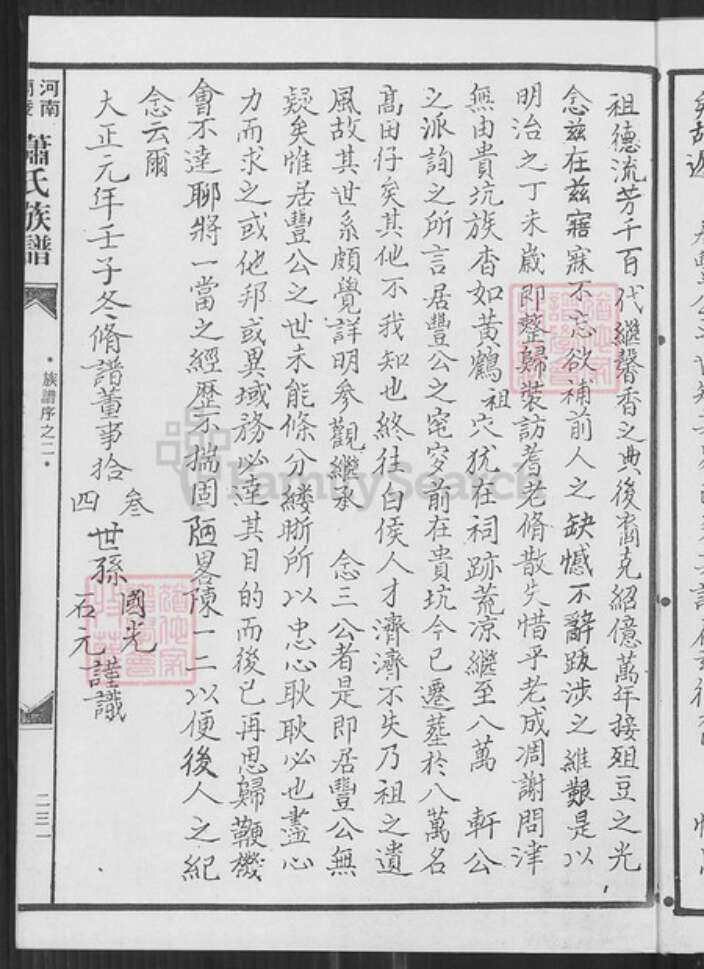 祖德流芳千百代繼馨香之典後裔克紹億萬年接俎豆之光
念茲在茲寤寐不忘欲補前人之缺憾不辭跋涉之維艱是以
明治之丁未歲即整歸裝訪耆老脩散失惜乎老成凋謝問津
無由貴坑族杳如黃鶴祖穴犹在祠跡荒凉繼至八萬 軒公
之派詢之所言居豐公之窀穸前在貴坑今已遷塟於八萬名
髙田仔矣其他不我知也終往白侯人才濟濟不失乃祖之遺
風故其世系頗覺詳明參觀繼承 念三公者是即居豐公無
疑矣惟居豐公之世未能條分縷晰所以忠心耿耿必也盡心
力而求之或他邦或異域務必達其目的而後已再思歸鞭機
會不達聊將一當之經歷不揣固陋畧陳一二以便後人之紀
念云爾
大正元年壬子冬脩譜董事拾
叁 世孫 國光
四 石元 謹識
河南
蕭氏族譜
•族譜序之二•
二三一
FamilySearch